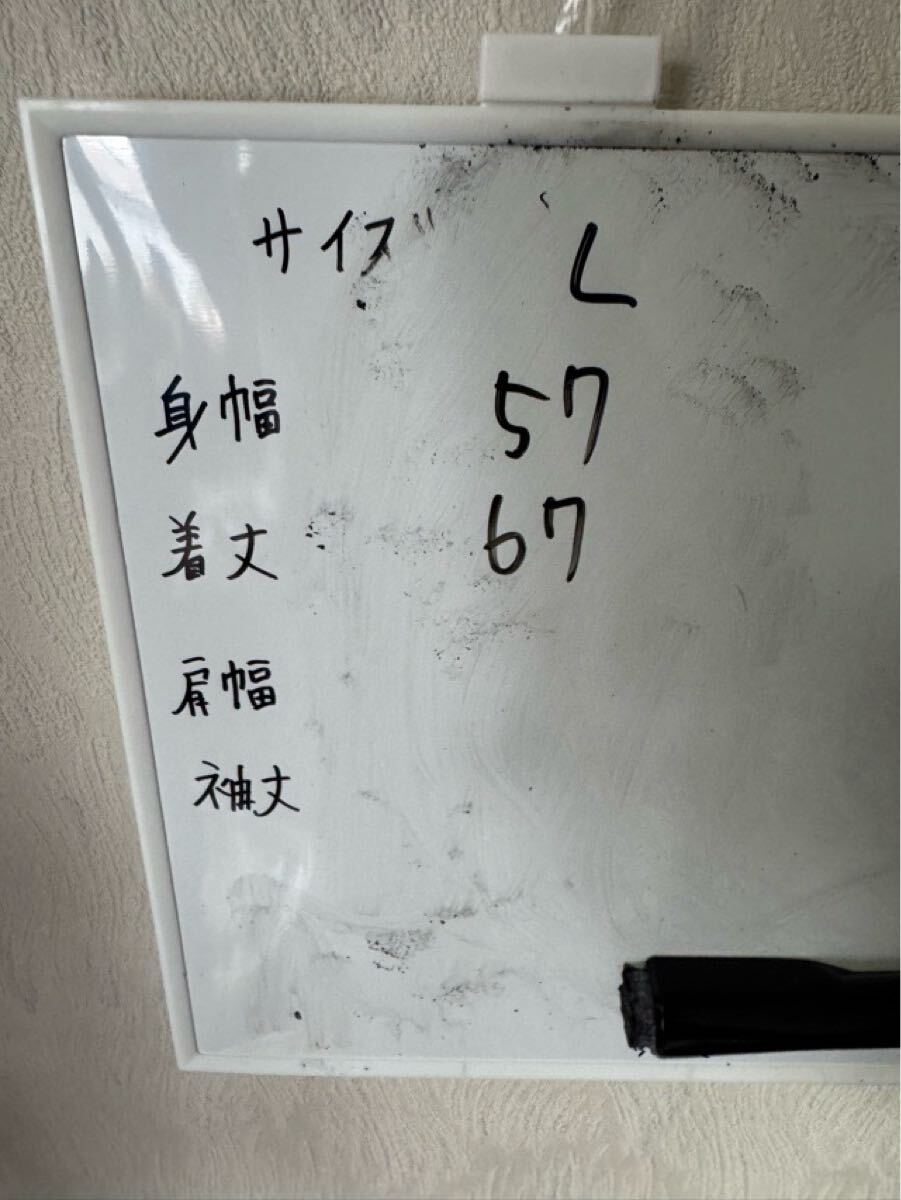 サイズ L
身幅 57
着丈 67
肩幅
袖丈